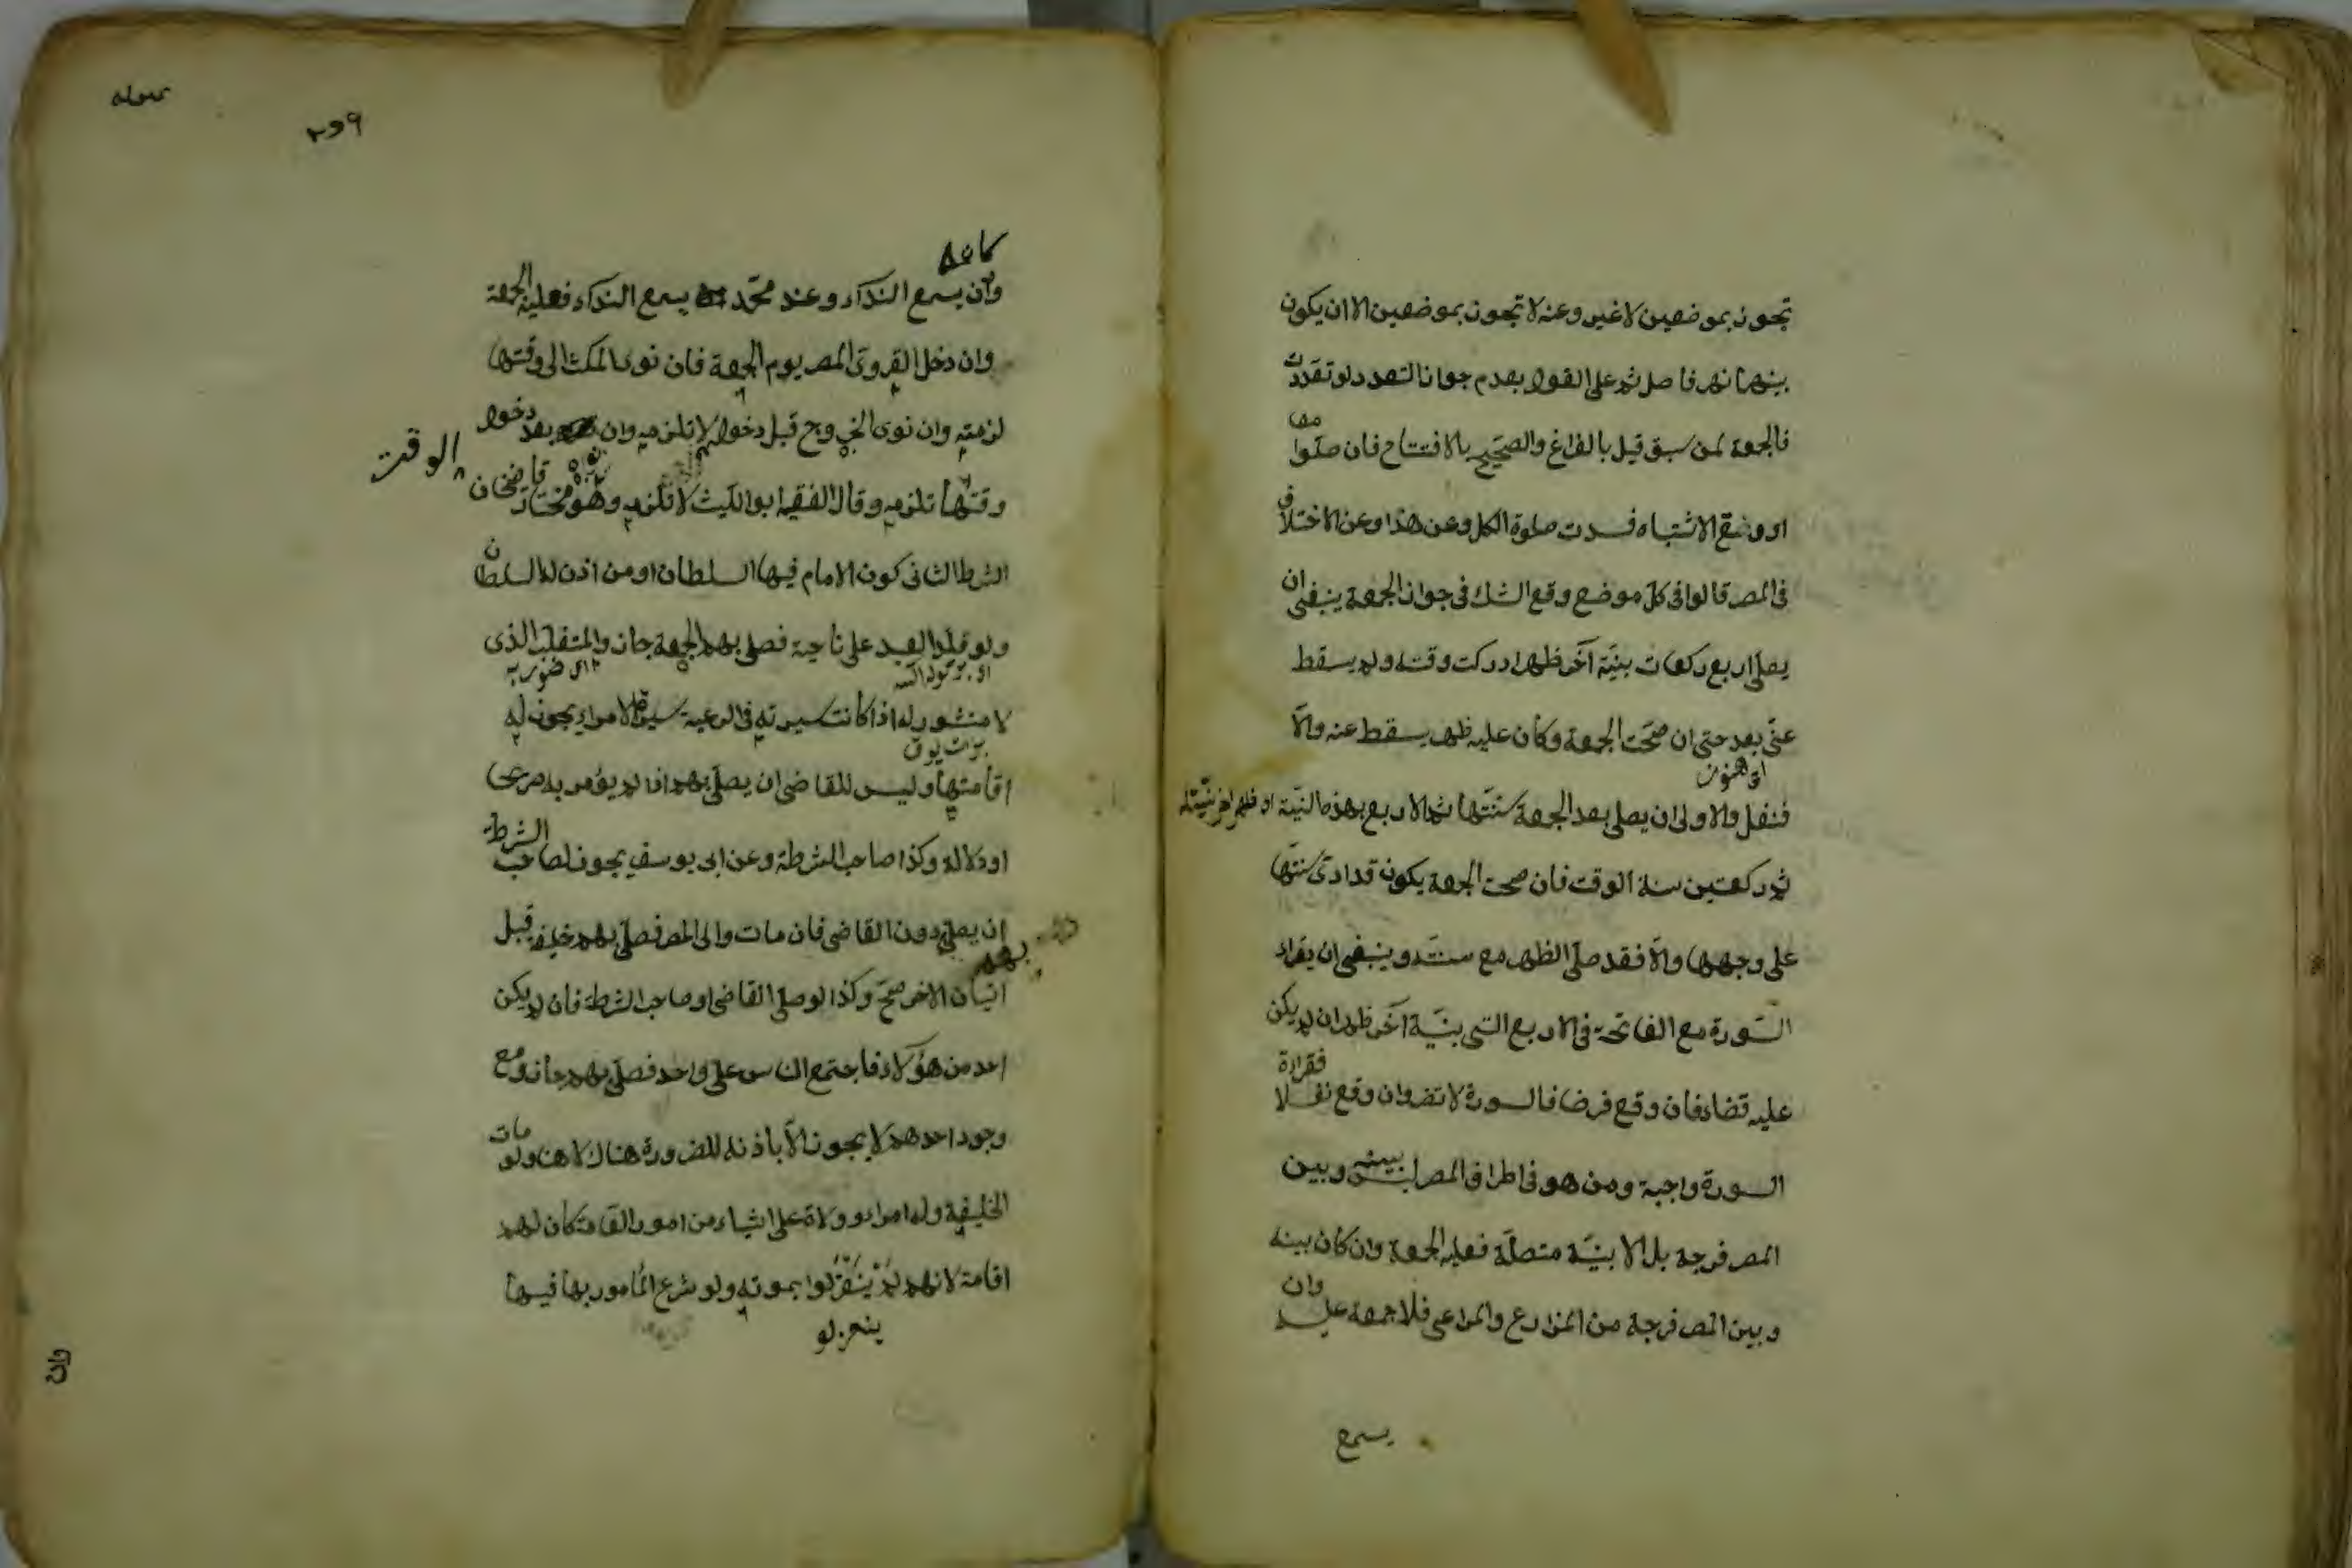 تجوز بموضعين لا غير وعنه لا تجوز بموضعين الا ان يكون
بينهما نهر فاصل ثم على القول بعدم جواز التعدد لو تعددت
فالجمعة لمن سبق قيل بالفراغ والصحيح بالافتتاح فان صلوا معا
او وقع الاشتباه فسدت صلوة الكل وعن هذا وعن الاختلاف
فى المصر قالوا فى كل موضع وقع الشك فى جواز الجمعة ينبغى ان
يصلى اربع ركعات بنية آخر ظهر ادركت وقته ولم يسقط
عنى بعد حتى ان صحت الجمعة وكان عليه ظهر يسقط عنه والا
فنفل والاولى ان يصلى بعد الجمعة سنتها ثم الاربع بهذه النية
ثم ركعتين سنة الوقت فان صحت الجمعة يكون قد ادى سنتها
على وجهها والا فقد صلى الظهر مع سنته وينبغى ان يقراء
السورة مع الفاتحة فى الاربع التى بنية آخر ظهر ان لم يكن
عليه قضاء فان وقع فرضا فالسورة لا تضر وان وقع نفلا فقراءة
السورة واجبة ومن هو فى اطراف المصر ليس بينه وبين
المصر فرجة بل الابنية متصلة فعليه الجمعة وان كان بينه
وبين المصر فرجة من المزارع والمراعى فلا جمعة عليه وان
يسمع
٢٥٩
كان
وان يسمع النداء وعند محمد يسمع النداء فعليه الجمعة
وان دخل القروى المصر يوم الجمعة فان نوى المكث الى وقتها
لزمته وان نوى الخروج قبل دخوله لا تلزمه وان بعد دخول
الوقت
وقتها تلزمه وقال الفقيه ابو الليث لا تلزمه وهو مختار قاضيخان
الشرط الثانى كون الامام فيها السلطان او من اذن له السلطان
ولو قلدوا العبد على ناحية فصلى بهم الجمعة جاز والمتغلب الذى
لا منشور له اذا كانت سيرته فى الرعية سيرة الامراء يجوز له
اقامتها وليس للقاضى ان يصلى بهم اذا لم يؤمر به صريحا
او دلالة وكذا صاحب الشرطة وعن ابى يوسف يجوز لصاحب الشرطة
ان يصلى دون القاضى فان مات والى المصر فصلى بهم خليفته قبل
بهم
اتيان الاخر صح وكذا لو صلى القاضى او صاحب الشرطة فان لم يكن
احد من هؤلاء فاجتمع الناس على واحد فصلى بهم جاز ومع
وجود احدهم لا يجوز الا باذنه للضرورة هناك لا هنا ولو مات
الخليفة وله امراء وولاة على اشياء من امور العامة كان لهم
اقامة لانهم لم ينعزلوا بموته ولو شرع المأمور بها فيها
ينعزلو